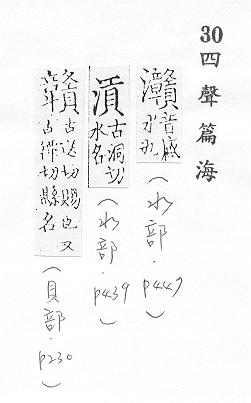 30 四聲篇海
灨音感水名
(水部.p447)
古洞切
水名
(水部.p439)
古送切賜也又
切縣名
(貝部.p230)